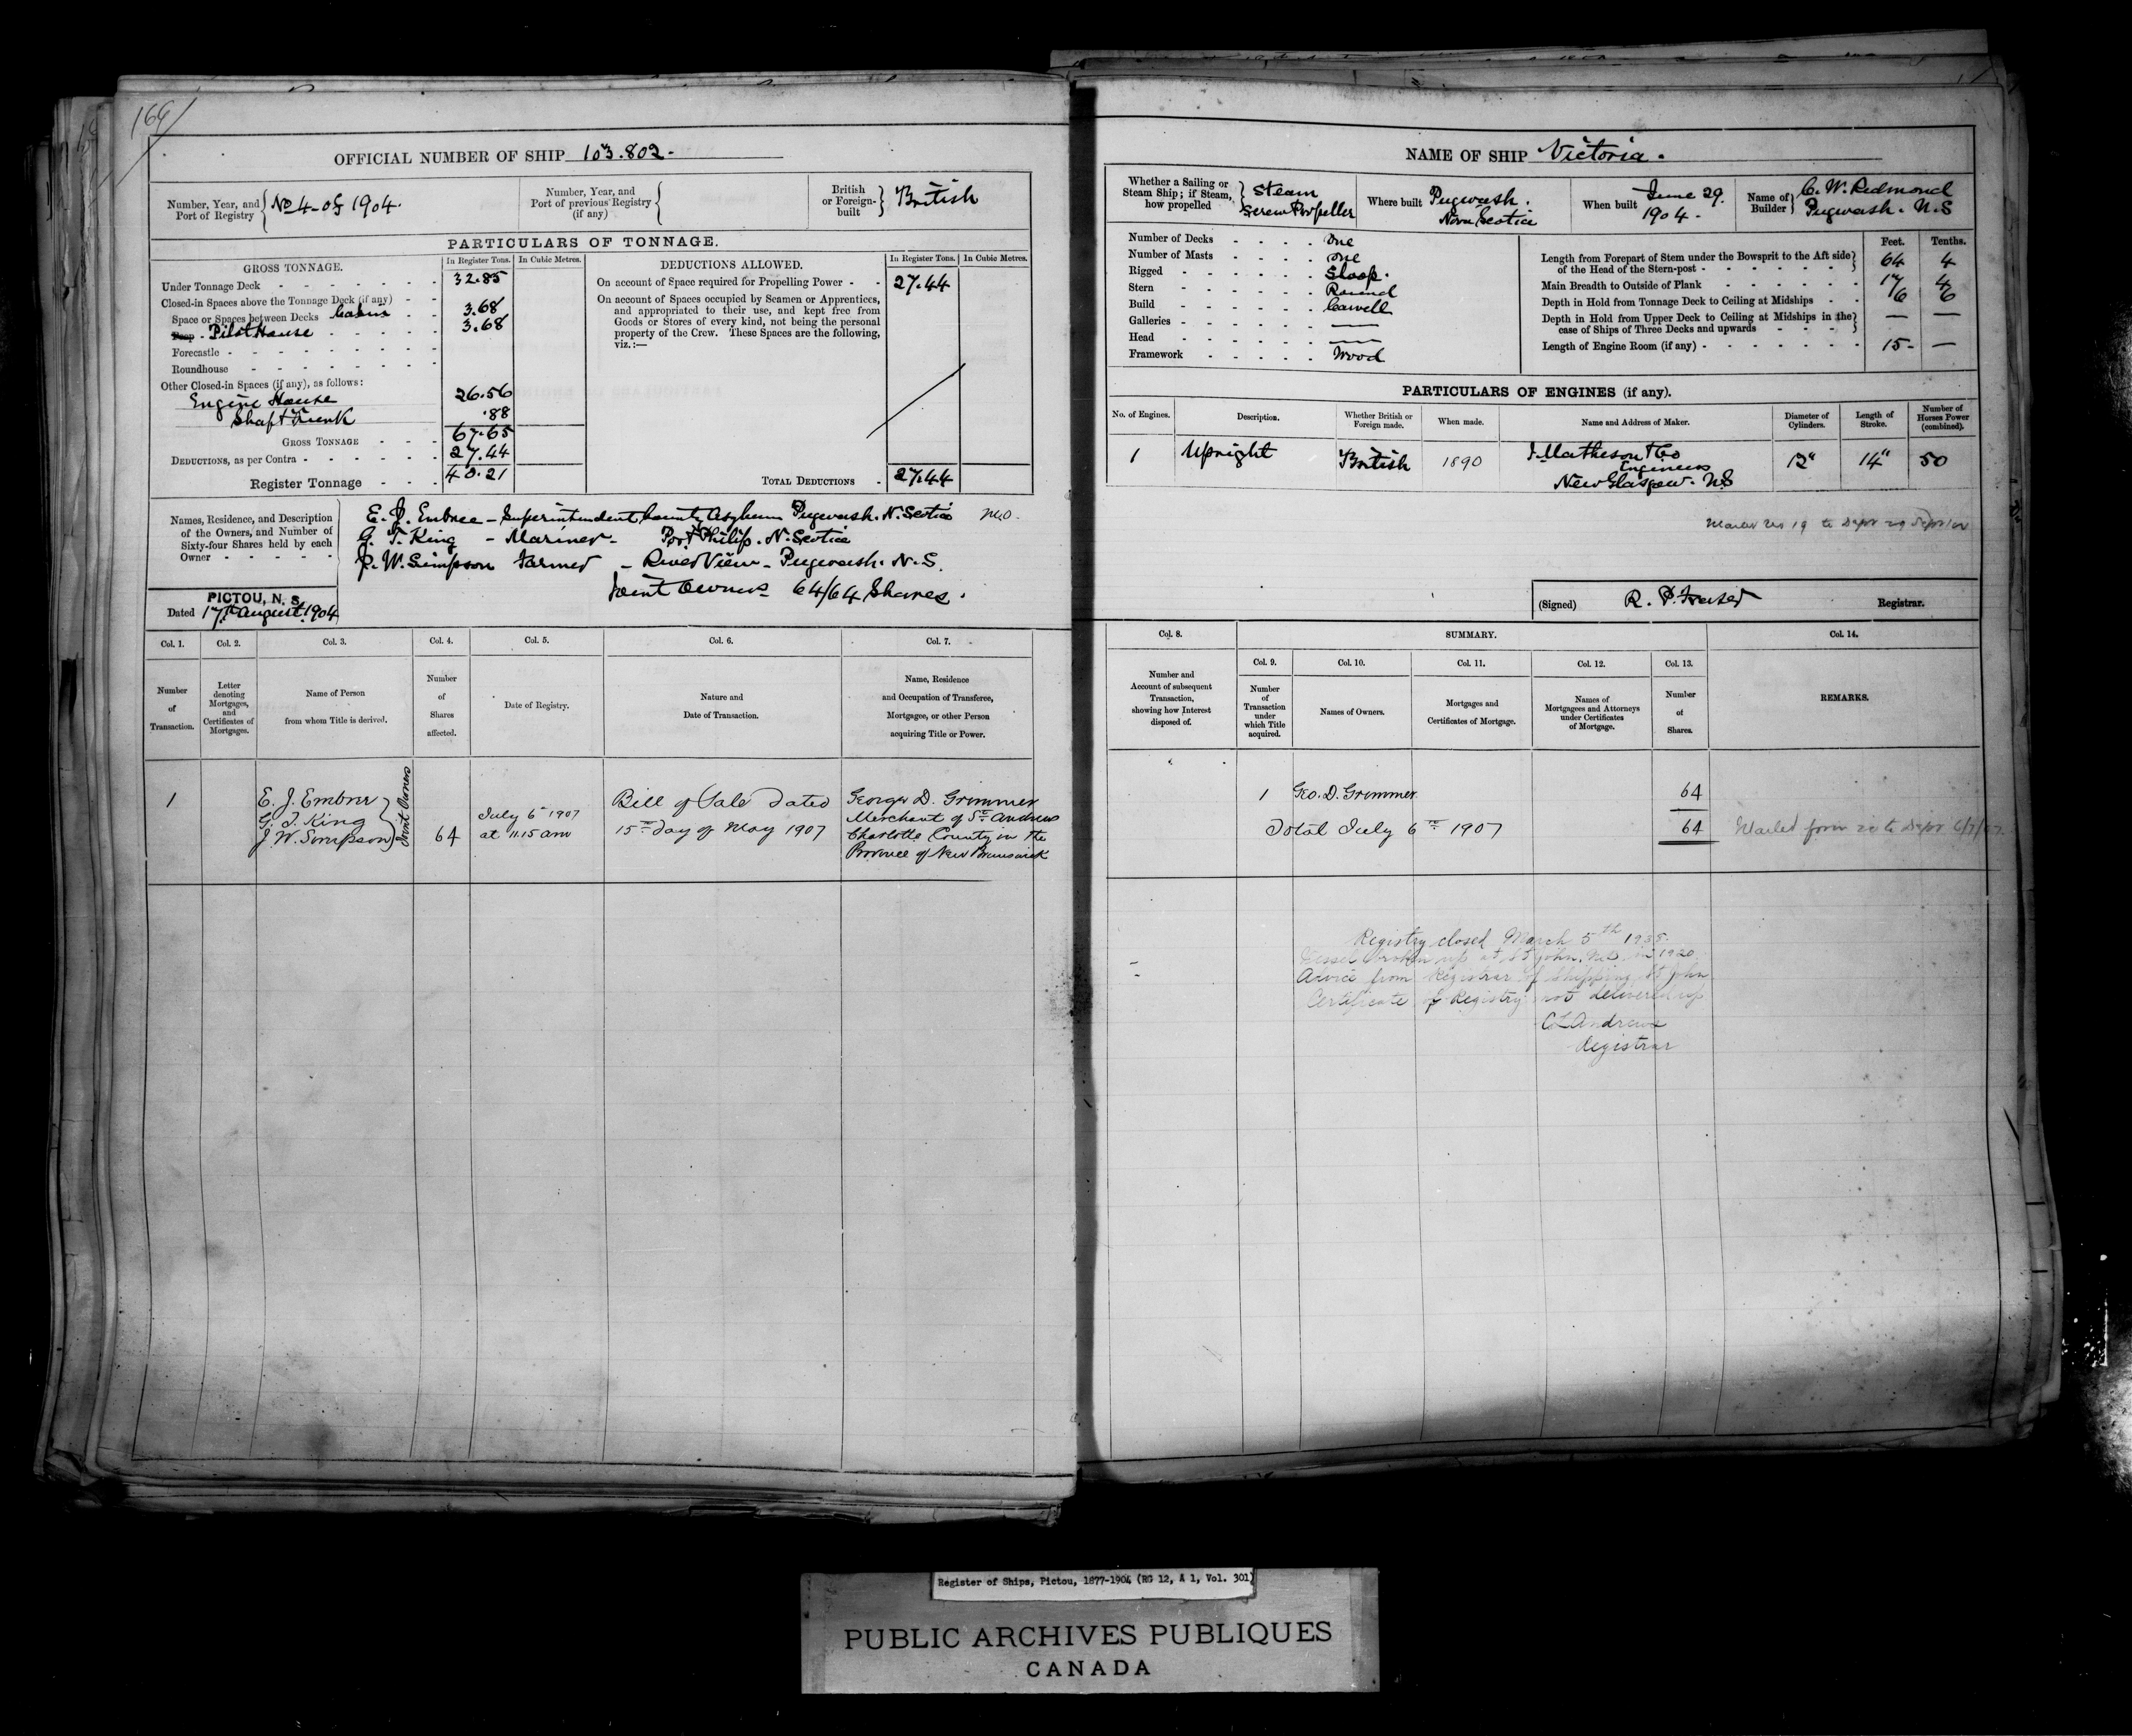 166/
OFFICIAL NUMBER OF SHIP 103.802.
Number, Year, and Port of Registry { No 4 of 1904.
Number, Year, and Port of previous Registry (if any) {
British or Foreign-built } British
PARTICULARS OF TONNAGE.
GROSS TONNAGE.
In Register Tons. In Cubic Metres.
Under Tonnage Deck - 32.85
Closed-in Spaces above the Tonnage Deck (if any) -
Space or Spaces between Decks Cabin - 3.68
Poop - Pilot House - 3.68
Forecastle -
Roundhouse -
Other Closed-in Spaces (if any), as follows:
Engine House 26.56
Shaft Trunk .88
GROSS TONNAGE - 67.65
DEDUCTIONS, as per Contra - 27.44
Register Tonnage - 40.21
DEDUCTIONS ALLOWED.
In Register Tons. In Cubic Metres.
On account of Space required for Propelling Power - 27.44
On account of Spaces occupied by Seamen or Apprentices,
and appropriated to their use, and kept free from
Goods or Stores of every kind, not being the personal
property of the Crew. These Spaces are the following,
viz.:—
TOTAL DEDUCTIONS - 27.44
Names, Residence, and Description of the Owners, and Number of Sixty-four Shares held by each Owner -
E. J. Embree - Superintendent County Asylum Pugwash. N. Scotia M.O.
G. T. King - Mariner - Port Philip. N. Scotia
J. W. Simpson Farmer - River View - Pugwash. N. S.
Joint Owners 64/64 Shares.
PICTOU, N. S.
Dated 17th August 1904
Col. 1. Col. 2. Col. 3. Col. 4. Col. 5. Col. 6. Col. 7.
Number of Transaction.
Letter denoting Mortgages, and Certificates of Mortgages.
Name of Person from whom Title is derived.
Number of Shares affected.
Date of Registry.
Nature and Date of Transaction.
Name, Residence and Occupation of Transferee, Mortgagee, or other Person acquiring Title or Power.
1
E. J. Embree
G. T. King
J. W. Simpson
Joint Owners
64
July 6th 1907
at 11.15 am
Bill of Sale Dated
15th day of May 1907
George D. Grimmer
Merchant of St. Andrews
Charlotte County in the
Province of New Brunswick
NAME OF SHIP Victoria.
Whether a Sailing or Steam Ship; if Steam, how propelled } Steam Screw Propeller
Where built Pugwash. Nova Scotia
When built June 29. 1904.
Name of Builder } C. W. Redmond Pugwash. N.S
Number of Decks - One
Number of Masts - One
Rigged - Sloop.
Stern - Round
Build - Carvell
Galleries - —
Head - —
Framework - Wood
Feet. Tenths.
Length from Forepart of Stem under the Bowsprit to the Aft side of the Head of the Stern-post - 64 4
Main Breadth to Outside of Plank - 17 4
Depth in Hold from Tonnage Deck to Ceiling at Midships - 6 6
Depth in Hold from Upper Deck to Ceiling at Midships in the case of Ships of Three Decks and upwards - — —
Length of Engine Room (if any) - 15- —
PARTICULARS OF ENGINES (if any).
No. of Engines. Description. Whether British or Foreign made. When made. Name and Address of Maker. Diameter of Cylinders. Length of Stroke. Number of Horses Power (combined).
1 Upright British 1890 I. Matheson & Co Engineers New Glasgow. N.S 12" 14" 50
(Signed) R. P. Fraser Registrar.
Col. 8. SUMMARY. Col. 14.
Col. 9. Col. 10. Col. 11. Col. 12. Col. 13.
Number and Account of subsequent Transaction, showing how Interest disposed of.
Number of Transaction under which Title acquired.
Names of Owners.
Mortgages and Certificates of Mortgage.
Names of Mortgagees and Attorneys under Certificates of Mortgage.
Number of Shares.
REMARKS.
1 Geo. D. Grimmer 64
Total July 6th 1907 64 Mailed form 20 to Dept 6/7/07
Registry closed March 5th 1935.
Vessel broken up at St John, N.B. in 1920
Advice from Registrar of Shipping, St John
Certificate of Registry not delivered up
C L Andrews
Registrar
Register of Ships, Pictou, 1877-1904 (RG 12, A 1, Vol. 301)
PUBLIC ARCHIVES PUBLIQUES
CANADA